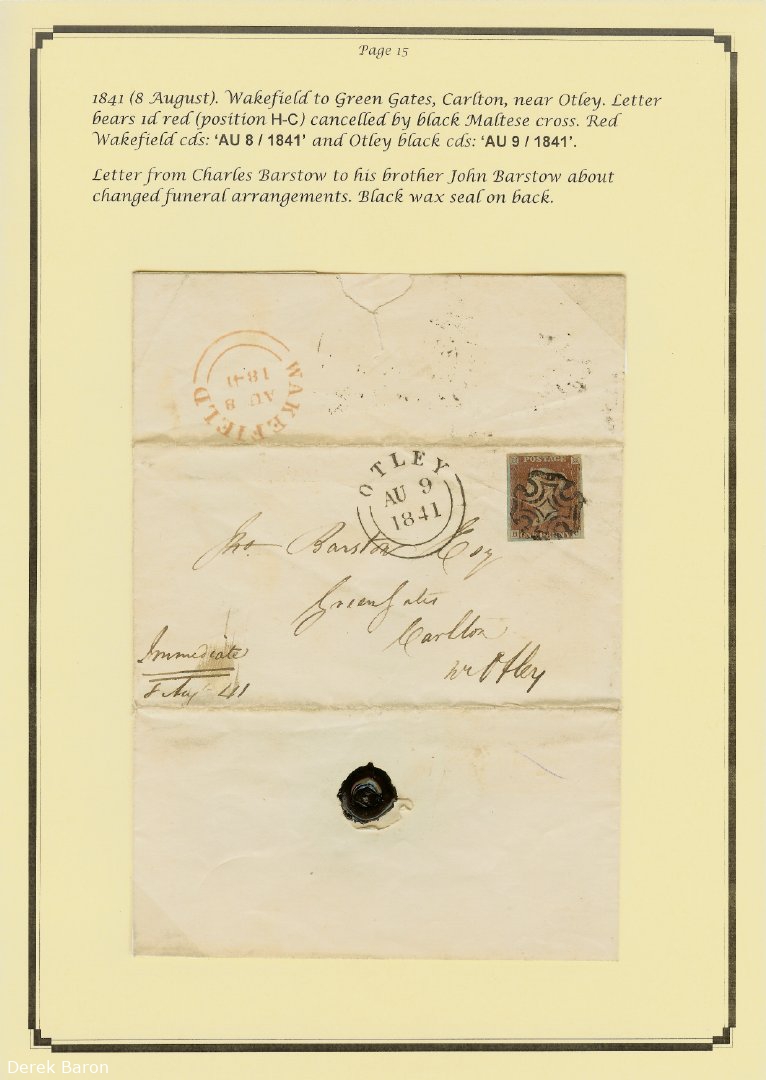 Page 15
1841 (8 August). Wakefield to Green Gates, Carlton, near Otley. Letter
bears 1d red (position H-C) cancelled by black Maltese cross. Red
Wakefield cds: ‘AU 8 / 1841’ and Otley black cds: ‘AU 9 / 1841’.
Letter from Charles Barstow to his brother John Barstow about
changed funeral arrangements. Black wax seal on back.
WAKEFIELD
AU 8
1841
OTLEY
AU 9
1841
POSTAGE
Jno. Barstow Esq
Green Gates
Carlton
nr Otley
Immediate
8 Aug 41
Derek Baron